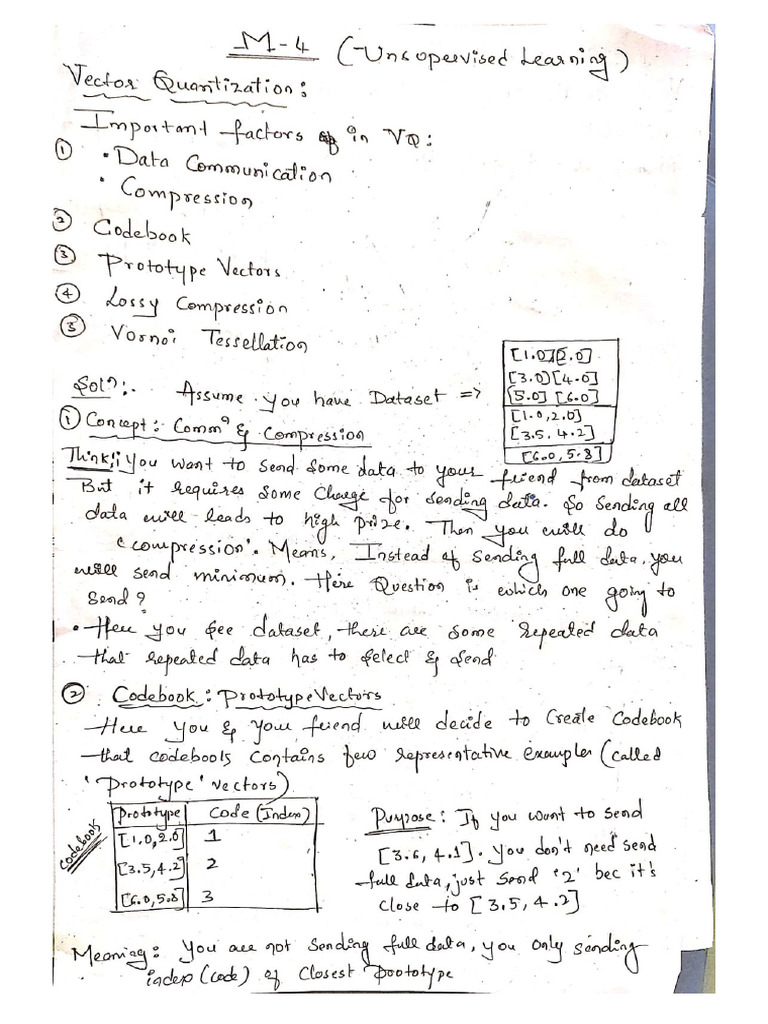 M-4 (Unsupervised Learning)
Vector Quantization:
Important factors in VQ:
① • Data Communication
• Compression
② Codebook
③ Prototype Vectors
④ Lossy Compression
⑤ Vornoi Tessellation
Solⁿ:- Assume you have Dataset =>
[1.0][2.0]
[3.0][4.0]
[5.0] [6.0]
[1.0, 2.0]
[3.5, 4.2]
[6.0, 5.8]
① Concept: Commⁿ & Compression
Think!: You want to send some data to your friend from dataset
But it requires some charge for sending data. So sending all
data will leads to high prize. Then you will do
'compression'. Means, Instead of sending full data, you
will send minimum. Here Question is which one going to
send?
• Here you see dataset, there are some repeated data
that repeated data has to select & send
② Codebook: Prototype Vectors
Here you & your friend will decide to create Codebook
that codebools contains few representative examples (called
'Prototype' vectors)
codebook
Prototype Code (Index)
[1.0, 2.0] 1
[3.5, 4.2] 2
[6.0, 5.8] 3
Purpose: If you want to send
[3.6, 4.1]. You don't need send
full data, just send '2' bec it's
close to [3.5, 4.2]
Meaning: You are not sending full data, you only sending
index (code) of closest Prototype